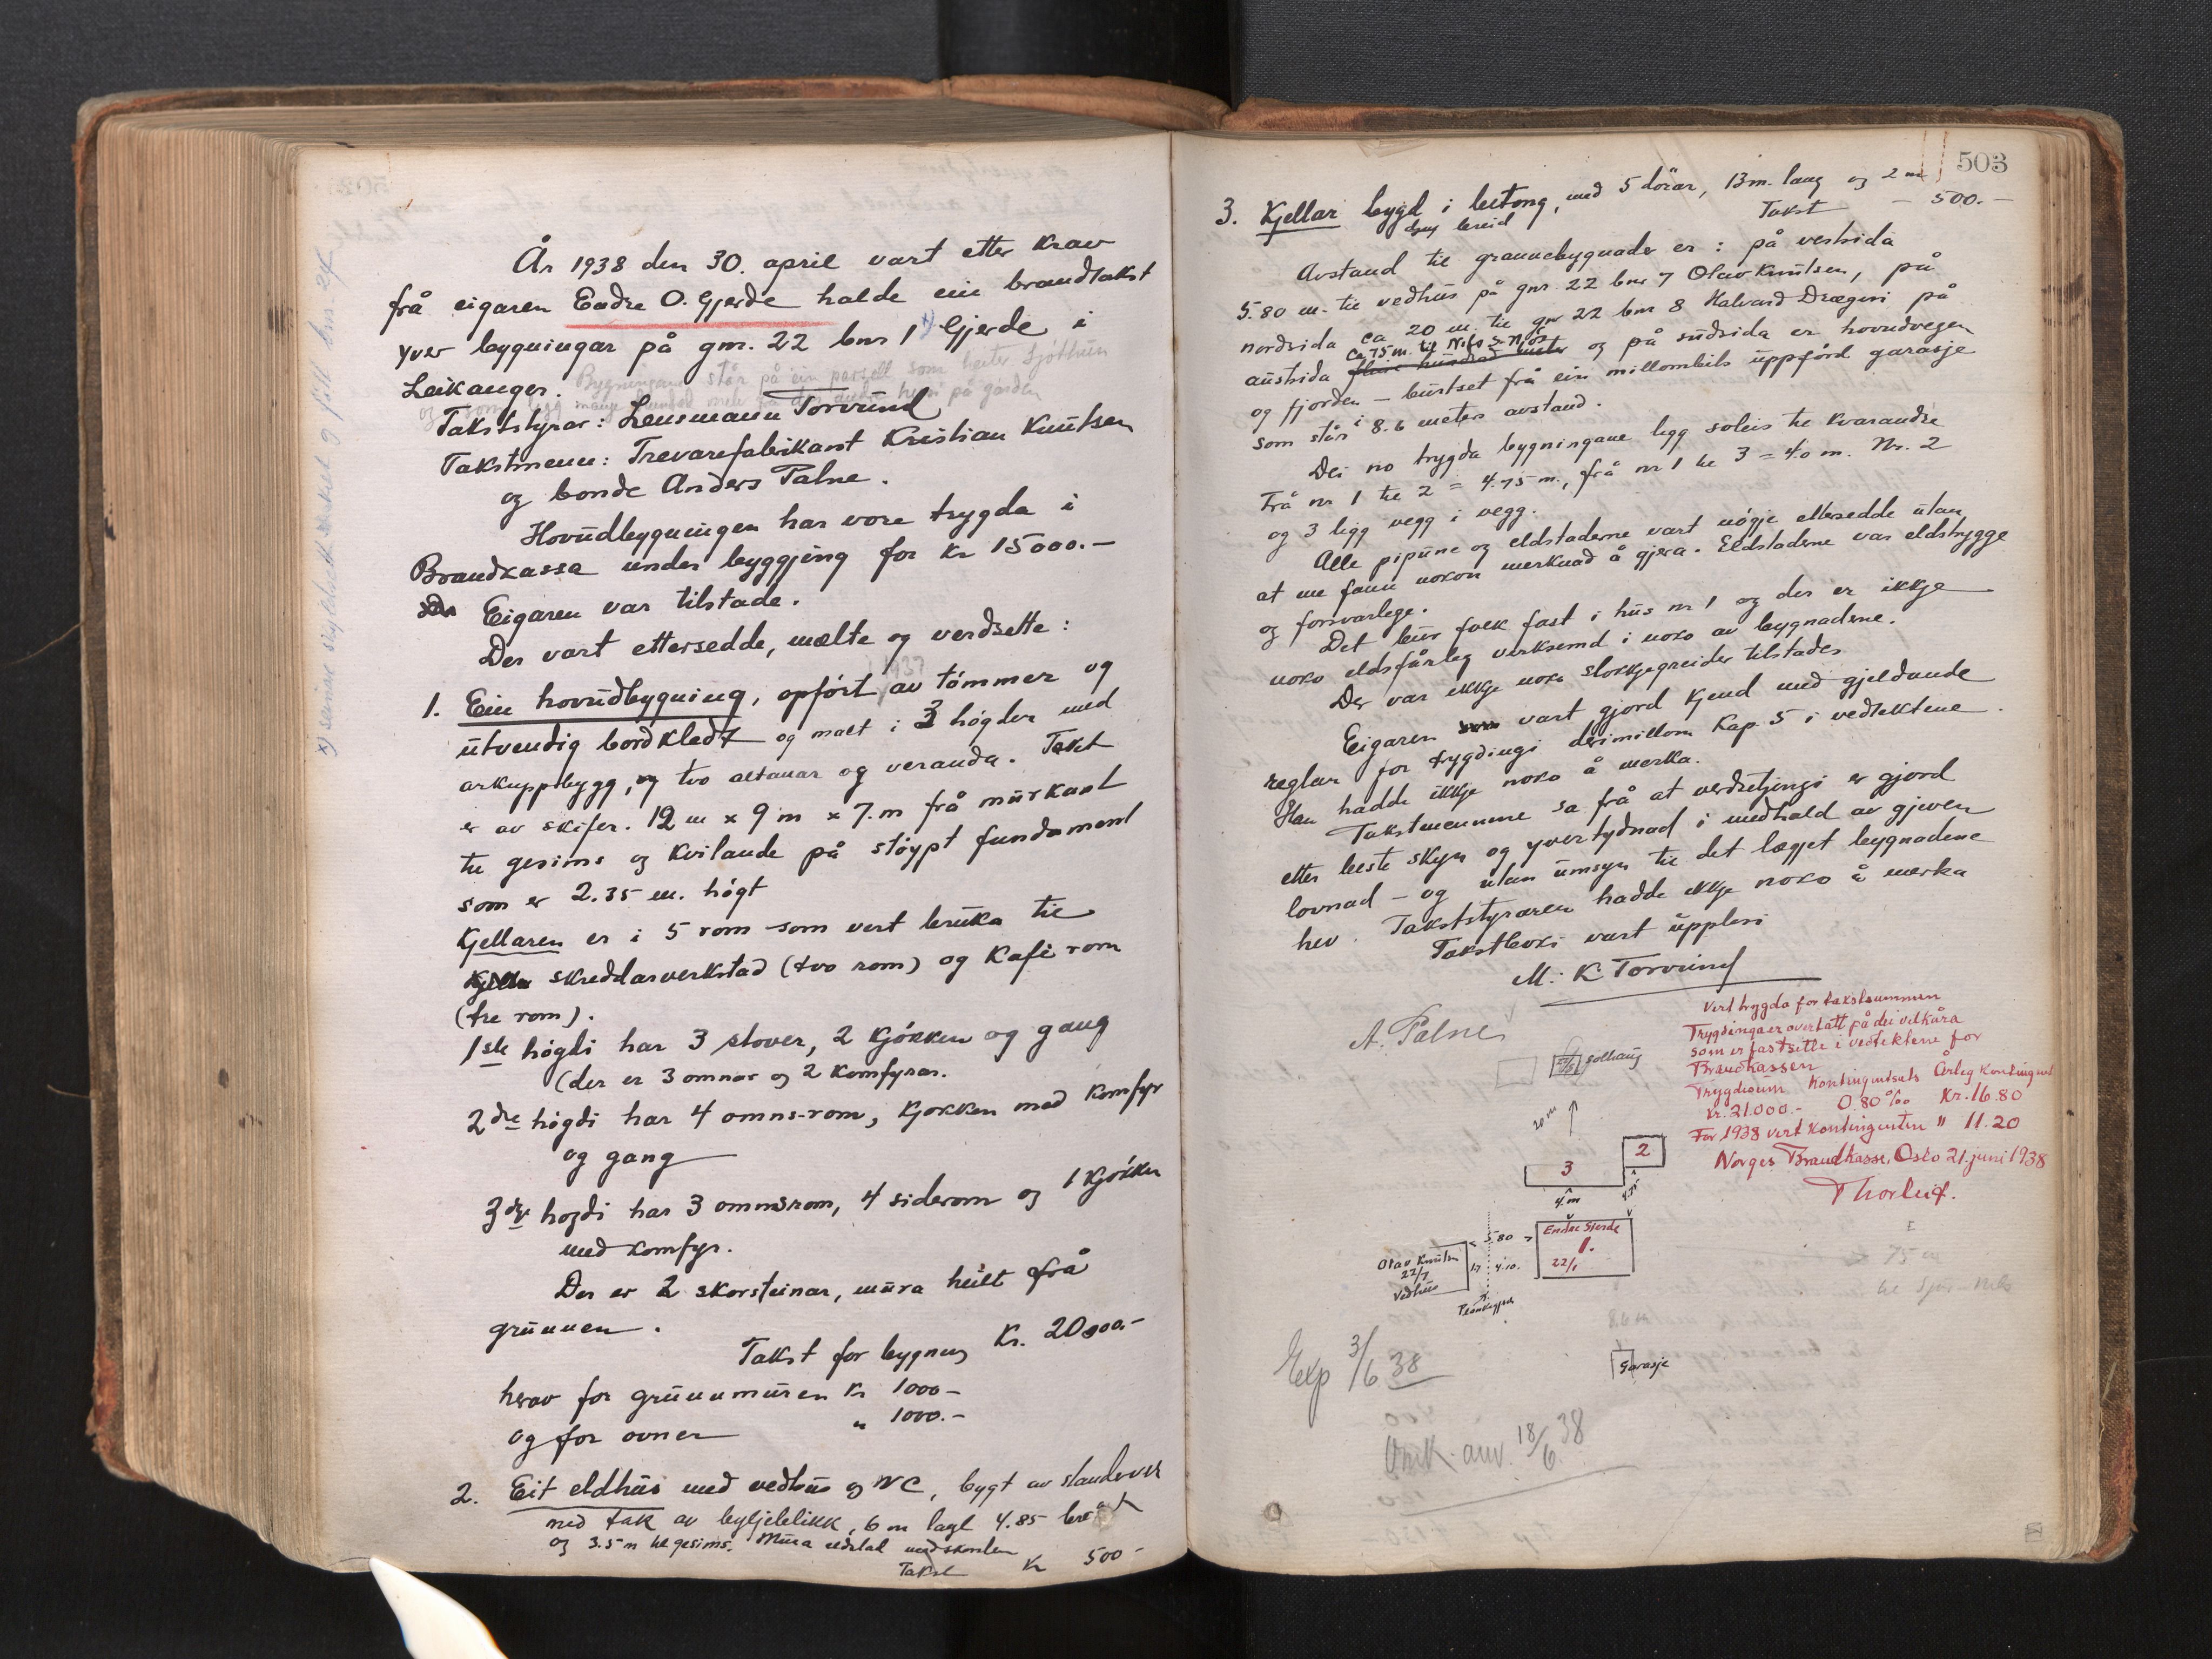 År 1938 den 30. april vart etter krav
frå eigaren Endre O. Gjerde halde ein brandtakst
yver bygningar på gnr. 22 bnr 1 x) Gjerde i
Leikanger. Bygningane står på ein parsell som heiter Sjøthun
og som ligg mange hundrad meter frå dei andre husi på garden
Takststyrar: Lensmann Torvund
Takstmenn: Trevarefabrikant Kristian Knutsen
og bonde Anders Talne.
Hovudbygningen har vore trygda i
Brandkassa under byggjing for kr 15000.-
Eigaren var tilstade.
Der vart ettersedde, mælte og verdsette:
1937
1. Ein hovudbygning, opført av tømmer og
utvendig bordkledt og malt i 3 høgder med
arkuppbygg, og tvo altanar og veranda. Taket
er av skifer. 12 m x 9 m x 7. m frå murkant
til gesims og kvilande på støypt fundament
som er 2.35 m. høgt
Kjellaren er i 5 rom som vert bruka til
skreddarverkstad (tvo rom) og Kafé rom
(tre rom).
1ste høgdi har 3 stover, 2 kjøkken og gang
(der er 3 omnar og 2 komfyrar.
2dre høgdi har 4 omns-rom, kjøkken med komfyr
og gang
3dje høgdi har 3 omnsrom, 4 siderom og 1 kjøkken
med komfyr.
Der er 2 skorsteinar, mura heilt frå
grunnen.
Takst for bygning Kr. 20000.-
herav for grunnmuren kr 1000-
og for ovner " 1000.-
2. Eit eldhus med vedhus og WC, bygt av standverk
med tak av bylgjeblikk, 6 m langt 4.85 breidt
og 3.5 m til gesims. Mura eldstad med skorsten
Takst Kr 500-
503
3. Kjellar bygd i betong, med 5 dörar, 13 m. lang og 2 m
breid
Takst - 500.-
Avstand til grannebygnader er: på vestsida
5.80 m. til vedhus på gnr. 22 bnr 7 Olav Knutsen, på
nordsida ca 20 m. til gnr 22 bnr 8 Halvard Drægni på
austsida ca 75 m. til Nils S. Njøs og på sudsida er hovudvegen
og fjorden - burtset frå ein millombils uppførd garasje
som står i 8.6 meters avstand.
Dei no trygda bygningane ligg soleis til kvarandre
Frå nr 1 til 2 = 4.75 m., frå nr 1 til 3 = 4.0 m. Nr. 2
og 3 ligg vegg i vegg.
Alle pipune og eldstaderne vart nøgje ettersedde utan
at me fann nokon merknad å gjera. Eldstaderne var eldstrygge
og forsvarlege.
Det bur folk fast i hus nr 1 og der er ikkje
noko eldsfårleg verksemd i noko av bygnaderne.
Der var ikkje noko slokkjegreider tilstades
Eigaren vart gjord kjend med gjeldande
reglar for trygdingi derimillom Kap. 5 i vedtektene.
Han hadde ikkje noko å merka.
Takstmennene sa frå at verdsetjingi er gjord
etter beste skyn og yvertydnad i medhald av gjeven
lovnad - og utan umsyn til det lægjet bygnadene
hev. Takststyraren hadde ikkje noko å merka
Takstboki vart upplesi
M. K Torvund
A. Talne
Vert trygda for takstsummen
Trygdinga er overtatt på dei vilkåra
som er fastsette i vedtektene for
Brandkassen
Trygdesum Kontingentsats Årleg kontingent
Kr. 21.000.- 0.80 ‰ Kr. 16.80
For 1938 vert kontingenten " 11.20
Norges Brandkasse, Oslo 21. juni 1938
Thorleif.
22/8 Solhaug
20 m
3
2
4. m
4.75
Endre Gjerde
1.
22/1
5.80
Olav Knutsen
22/7
Vedhus
1.7
4.10.
75 m
Garasje
Exp 3/6 38
Omk. anv. 18/6 38
x) seinare skyldelt serskilt g fått bnr. 24